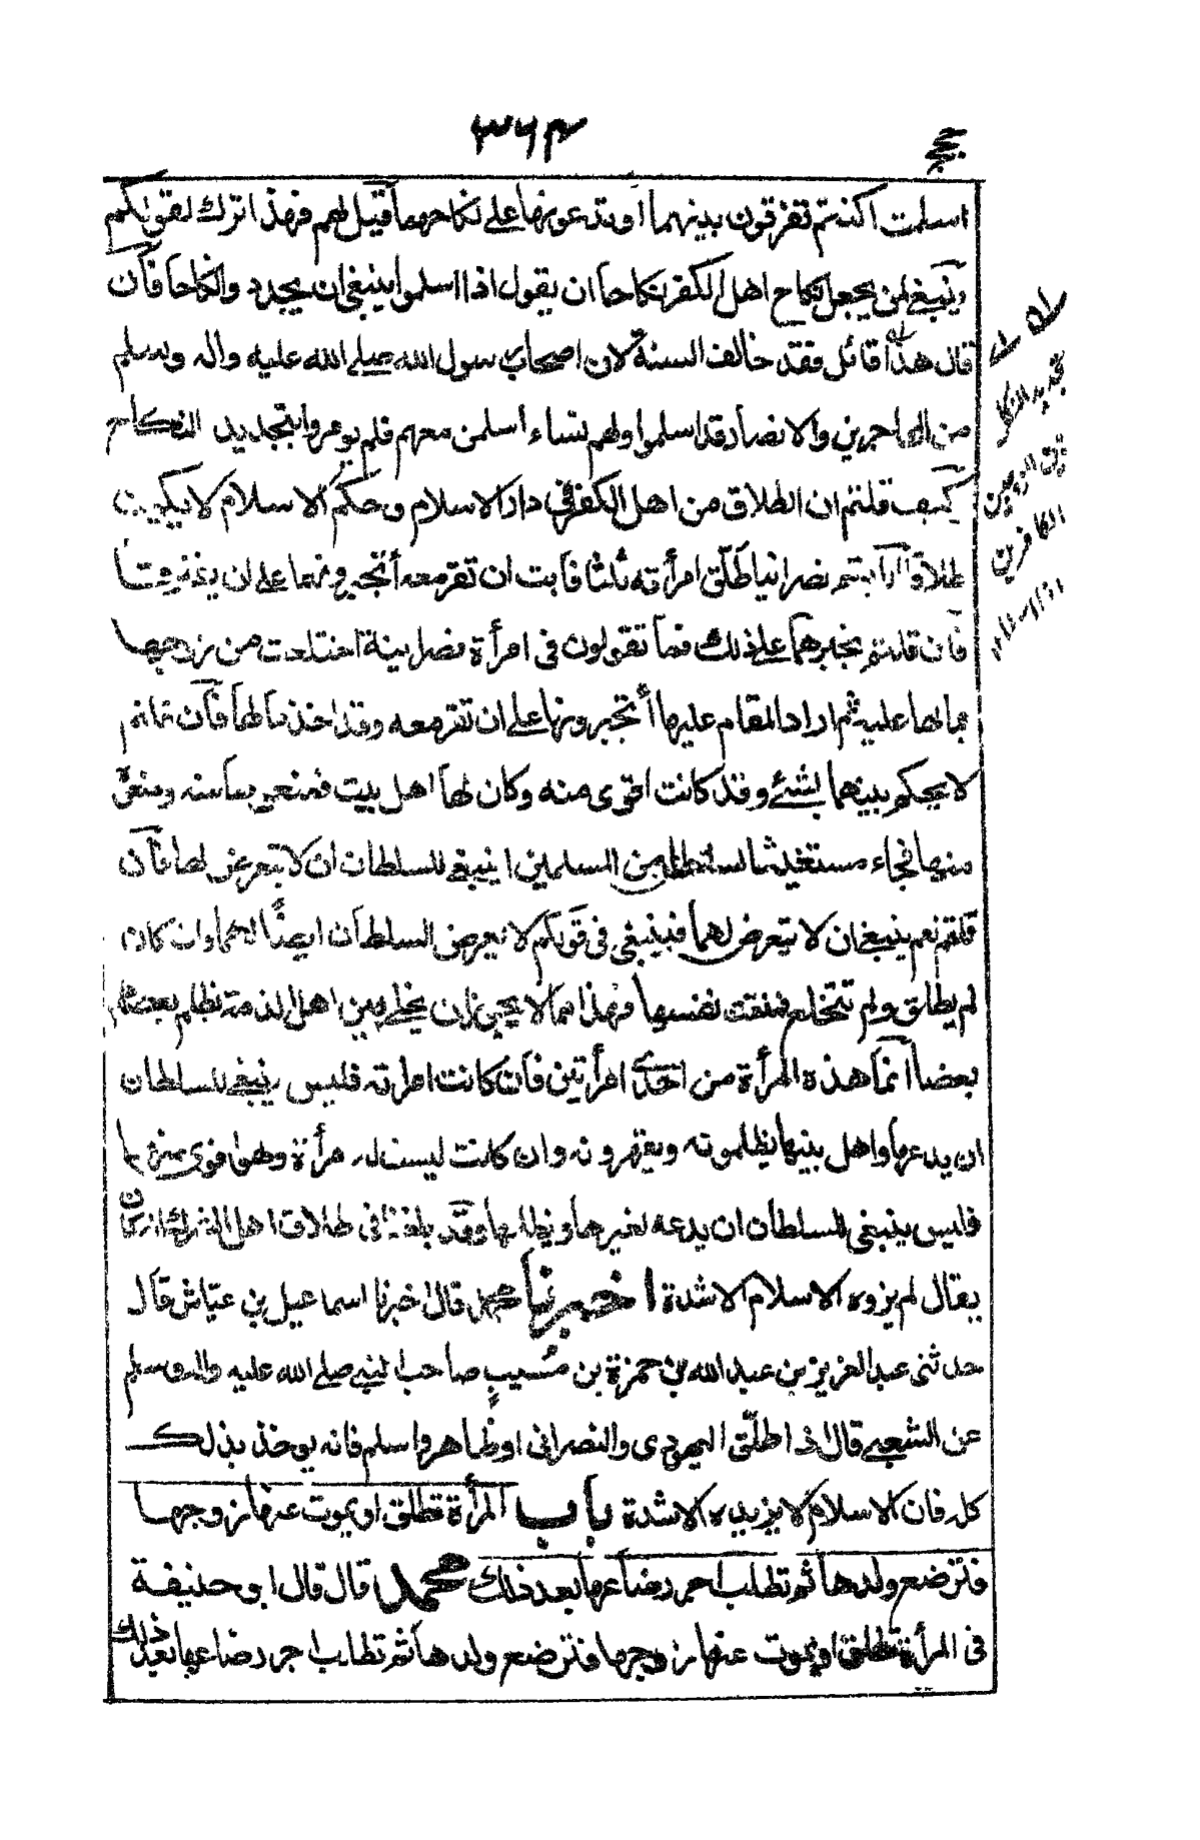 ٣٦٣
حجج
اسلمت اكنتم تفرقون بينهما او تدعونها على نكاحهما قيل لهم فهذا اترك لقولكم
وينبغي لمن يجعل نكاح اهل الكفر نكاحا ان يقول اذا اسلموا ينبغي ان يجدد وا نكاحا فان
قال هذا قائل فقد خالف السنة لان اصحاب رسول الله صلى الله عليه واله وسلم
من المهاجرين والانصار قد اسلموا ولهم نساء اسلمن معهم فلم يومروا بتجديد النكاح
كيف قلتم ان الطلاق من اهل الكفر في دار الاسلام وحكم الاسلام لا يكون
طلاقا ارايتم نصرانيا طلّق امرأته ثلثا فابت ان تقر معه أتجبرونها على ان
فان قلتم نجبرهما على ذلك فما تقولون فى امرأة نصرانية اختلعت من زوجها
بمالها عليه ثم اراد المقام عليها أتجبرونها على ان تقر معه وقد اخذ مالها فان قلتم
لا يحكم بينهما بشئ وقد كانت اقوى منه وكان لها اهل بيت فمنعوها منه ومنعوه
منها فجاء مستغيثا بسلطان من المسلمين اينبغي للسلطان ان لا يتعرض لهما فان
قلتم نعم ينبغي ان لا يتعرض لهما فينبغي فى قولكم لا يعرض السلطان ايضًا لهما وان كان
لم يطلق ولم تختلع فمنعت نفسها فهذا مما لا يجوز ان يخلى بين اهل الذمة تظلم بعضها
بعضا انما هذه المرأة من احدى امرأتين فان كانت امرأته فليس ينبغي للسلطان
ان يدعها واهل بيتها يظلمونه ويقهرونه وان كانت ليست له مرأة وهوا قوى منها
فليس ينبغى للسلطان ان يدعه لغيرها ويظلمها وقد بلغنا فى طلاق اهل الشرك انه كان
يقال لم يزوه الاسلام الا شدة اخبرنا محمد قال اخبرنا اسماعيل بن عيّاش قال
حدثنى عبد العزيز بن عبد الله بن حمزة بن صُهيب صاحب النبي صلى الله عليه واله وسلم
عن الشعبي قال اذا طلّق اليهودى والنصرانى او ظاهر واسلم فانه يوخذ بذلك
كله فان الاسلام لا يزيده الا شدة باب المرأة تطلق او يموت عنها زوجها
فترضع ولدها ثم تطلب اجر رضاعها بعد ذلك محمد قال قال ابو حنيفة
فى المرأة تطلق او يموت عنها زوجها فترضع ولدها ثم تطلب اجر رضاعها بعد ذلك
تجديد النكاح
الزوجين
الكافرين